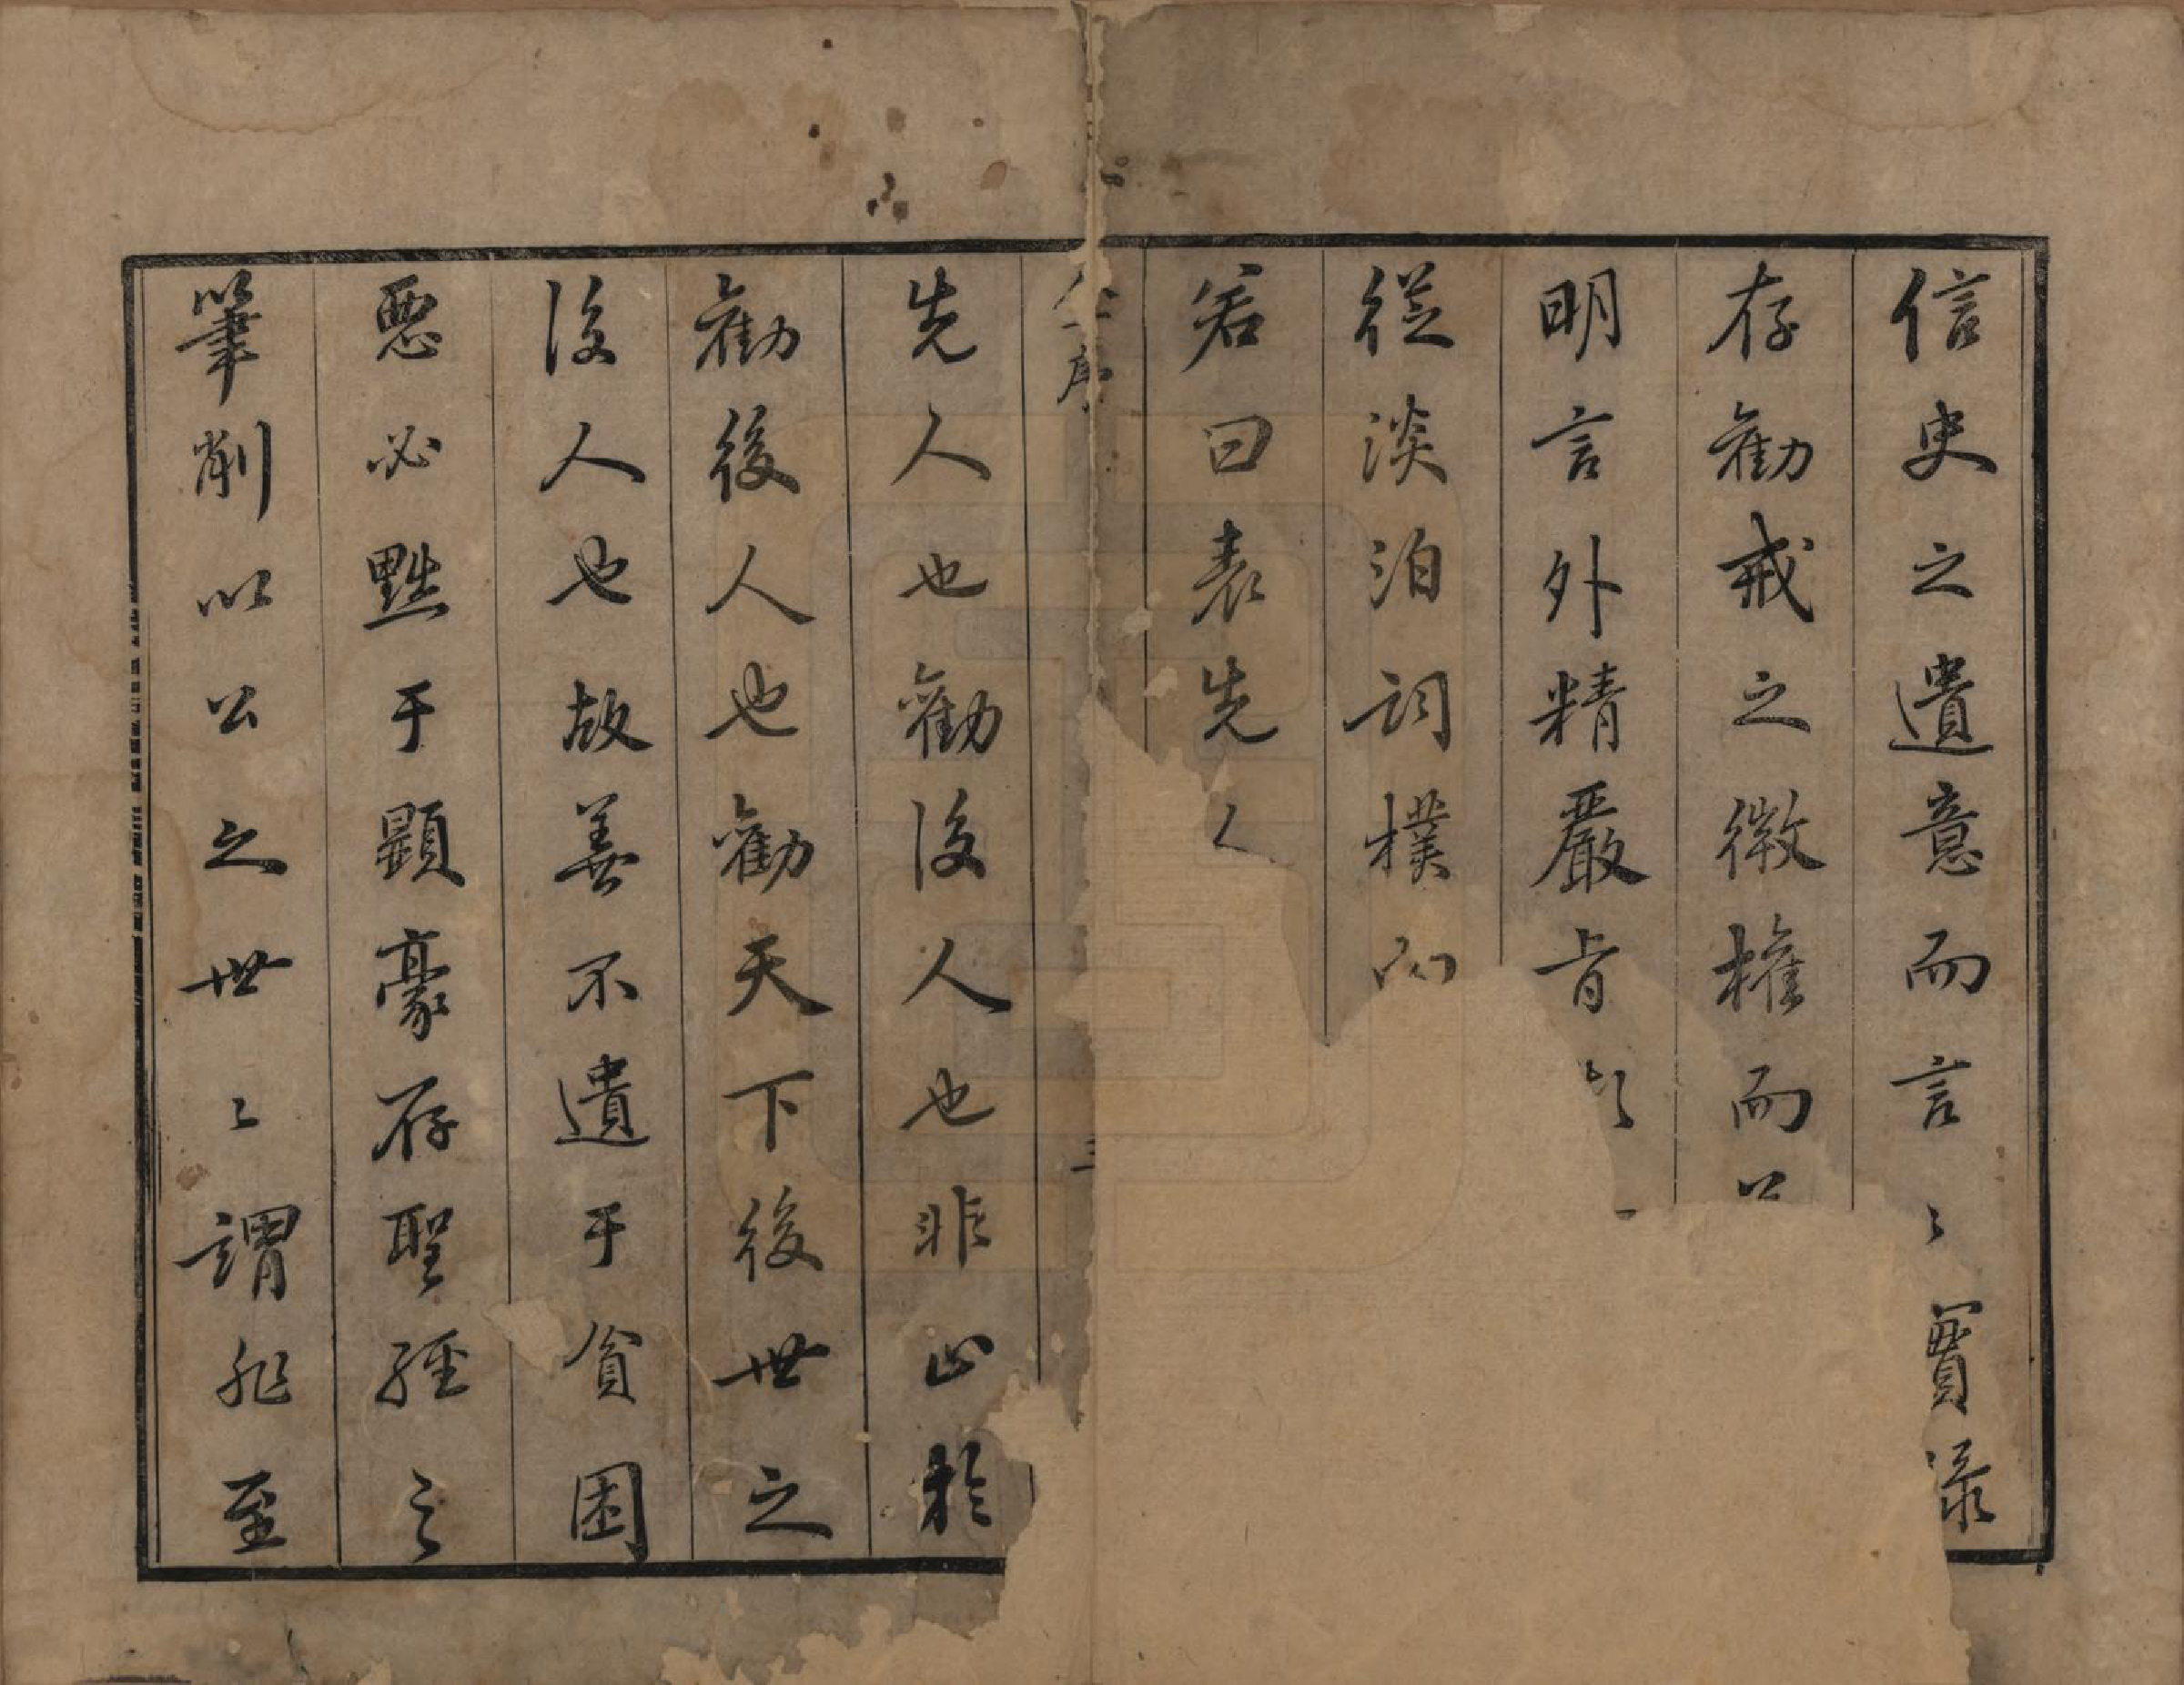 信史之遺意而言〻實录
存勸戒之微權而
明言外精嚴旨
從淡泊詞樸而
若曰表先人
序
先人也勸後人也非止於
勸後人也勸天下後世之
後人也故善不遺于貧困
惡必黜于顕豪存聖經之
筆削以公之世〻謂非至